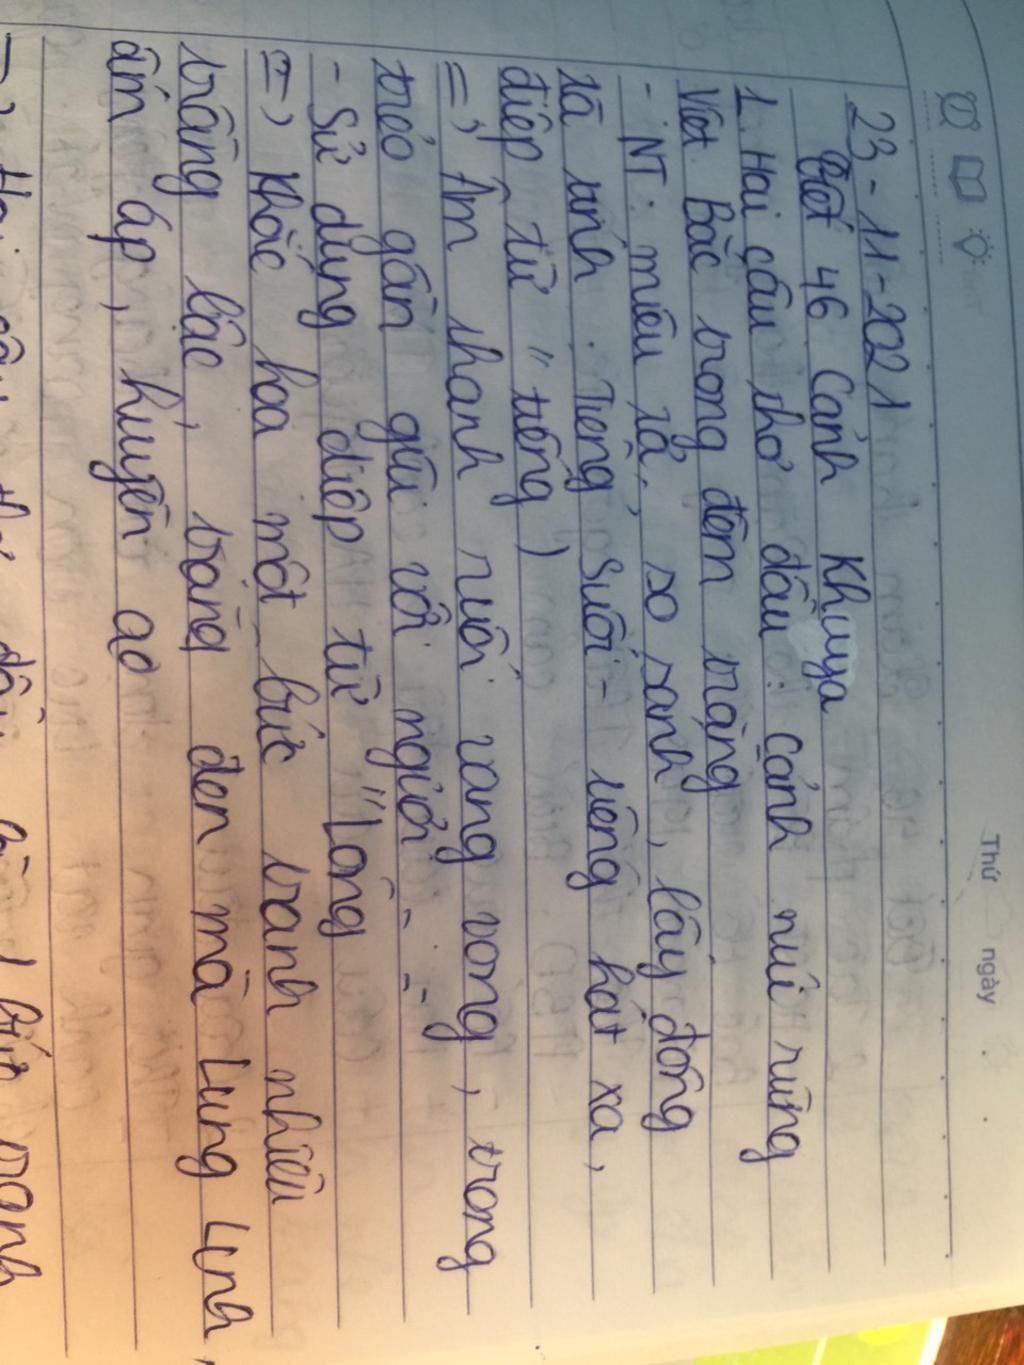 Thứ ngày
23-11-2021
Tiết 46 Cảnh Khuya
1. Hai câu thơ đầu: Cảnh núi rừng
Việt Bắc trong đêm trăng
- NT: miêu tả, so sánh, lấy động
tả tĩnh. Tiếng Suối - tiếng hát xa,
điệp từ "tiếng)
=> Âm thanh suối vang vọng, trong
trẻo gần gũi với người - - -
- Sử dụng điệp từ "Lồng
=> Khắc họa một bức tranh nhiều
tầng bậc, trắng đen mà Lung Linh
ấm áp, huyền ảo
=> Hai câu thơ đầu bức tranh